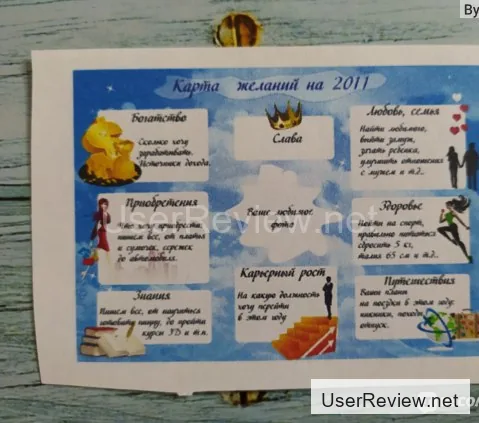 By
Карта желаний на 2011
Богатство
Сколько хочу
зарабатывать.
Источники дохода.
Слава
Любовь, семья
Найти любимого,
выйти замуж,
зачать ребенка,
улучшить отношения
с мужем и т.д..
Приобретения
Что хочу приобрести,
пишем все, от платья
и сумочек, сережек
до автомобиля.
Ваше любимое
фото
Здоровье
Пойти на спорт,
правильно питаться
сбросить 5 кг,
талия 65 см и т.д..
UserReview.net
Знания
Пишем все, от научиться
готовить пиццу, до пройти
курсы 3D и т.п.
Карьерный рост
На какую должность
хочу перейти
в этом году
Путешествия
Ваши планы
на поездки в этом году:
пикники, походы
отпуск.
UserReview.net